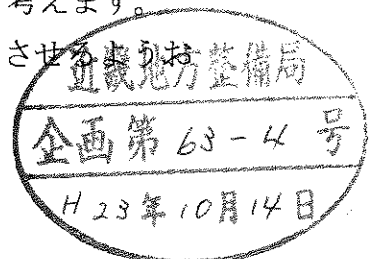 考えます。
させるようお
近畿地方整備局
企画第63-4号
H23年10月14日